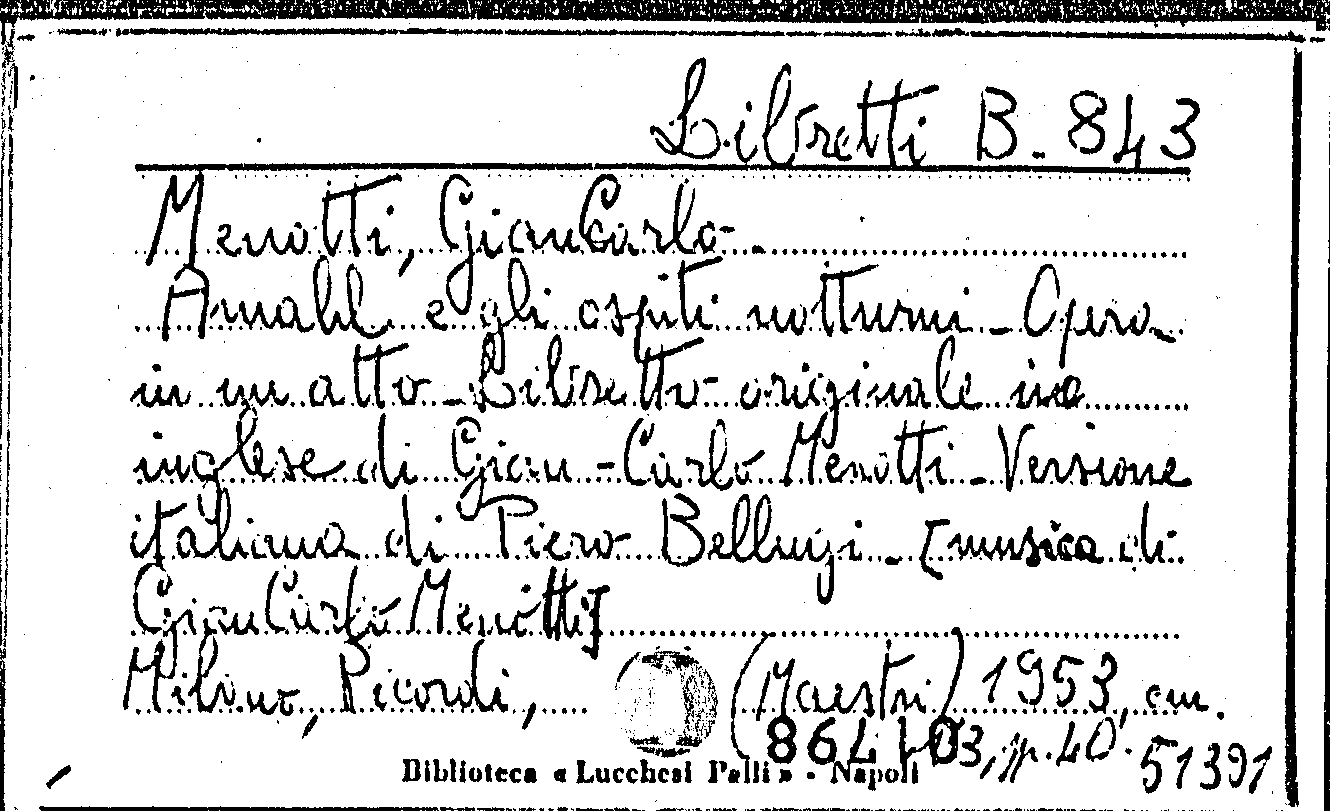 Libretti B. 843
Menotti, GianCarlo.
Amahl e gli ospiti notturni - Opera
in un atto - Libretto originale in
inglese di Gian-Carlo Menotti - Versione
italiana di Piero Bellugi - [musica di
GianCarlo Menotti]
Milano, Ricordi, (Maestri) 1953, cm.
pp. 40.
51391
Biblioteca « Lucchesi Palli » - Napoli